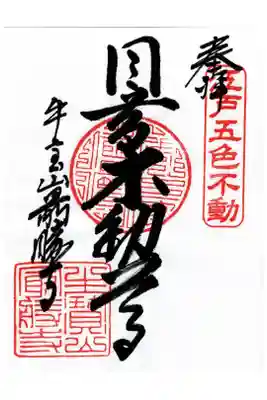 奉拝
江戸五色不動
目青不動尊
牛宝山最勝寺